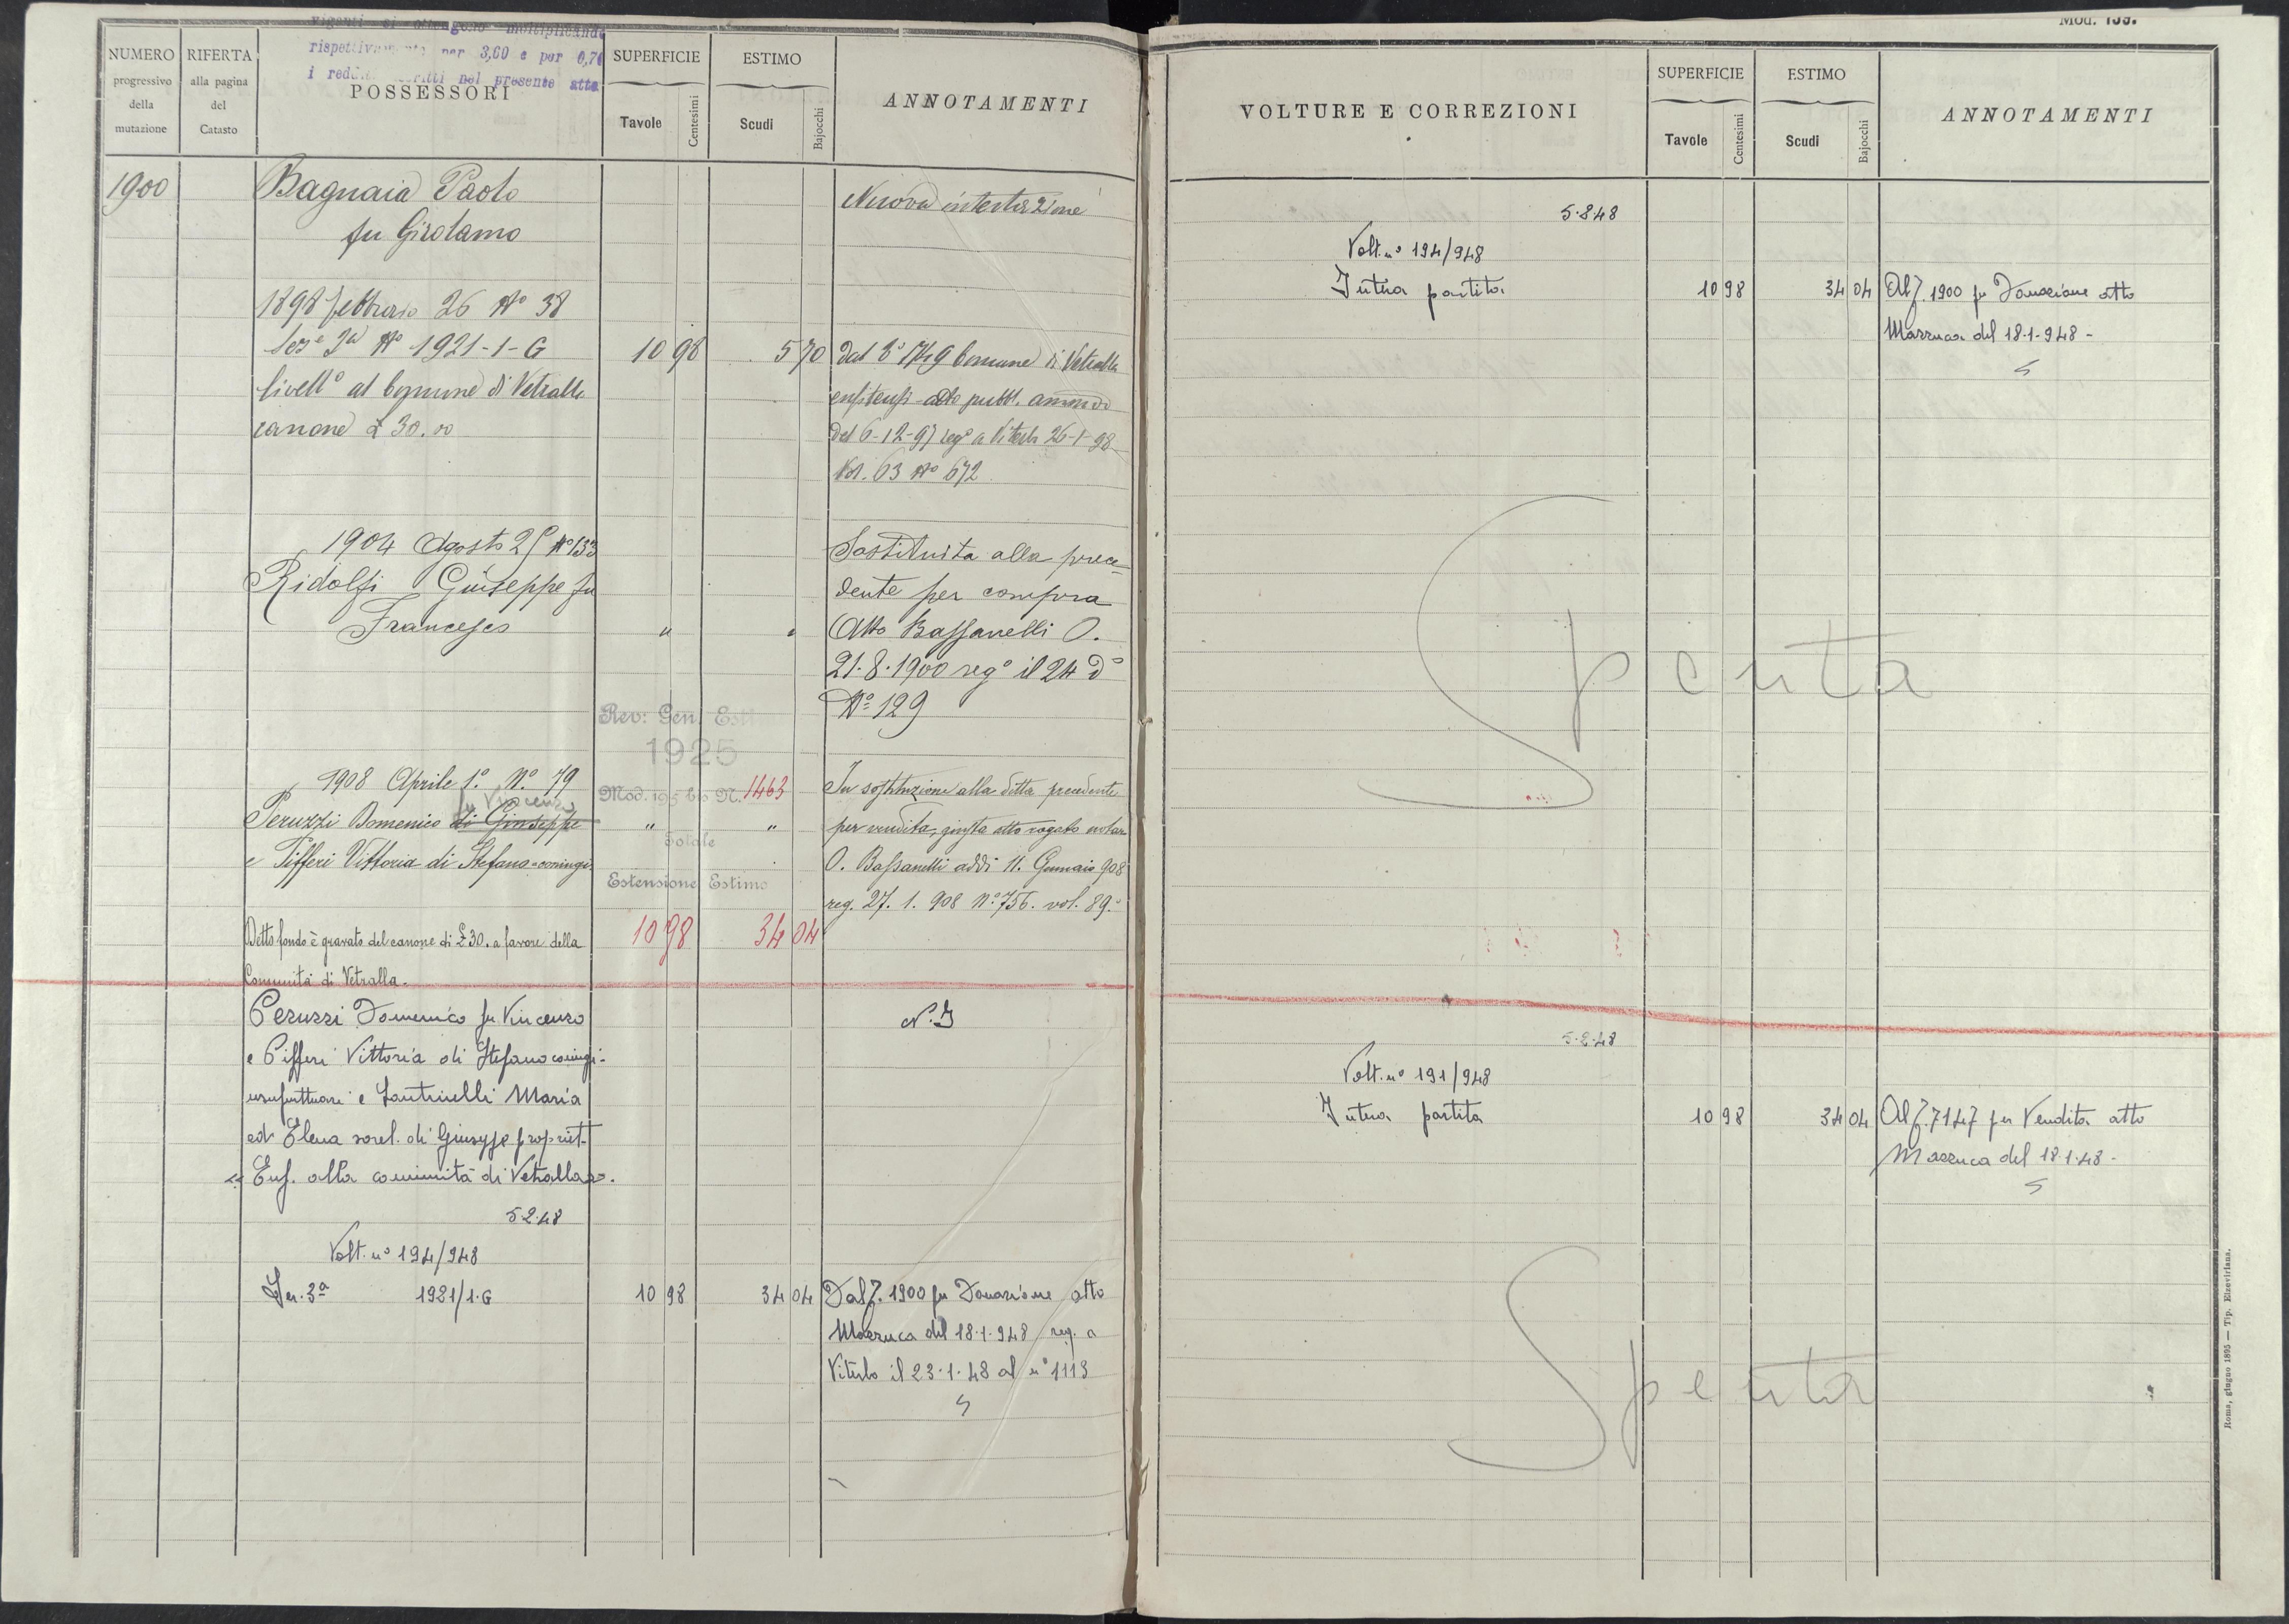 viganti si ottengono moltiplicando
rispettivamente per 3,60 e per 0,70
i redditi iscritti nel presente atto
NUMERO progressivo della mutazione
RIFERTA alla pagina del Catasto
POSSESSORI
SUPERFICIE
Tavole
Centesimi
ESTIMO
Scudi
Bajocchi
ANNOTAMENTI
1900
Bagnaia Paolo
fu Girolamo
Nuova intestazione
1898 febbraio 26 No 38
Sese 3a No 1921-1-G 10 98 5 70
livello al Comune di Vetralla
canone £ 30.00
dal 1749 Comune di Vetralla
enfiteusi atto pubbl. ammvo
del 6-12-97 rego a Viterbo 26-1-98
Vol. 63 No 672
1904 Agosto 25 No 133
Ridolfi Giuseppe fu
Francesco " "
Sostituita alla prece-
dente per compra
Atto Bassanelli O.
21.8.1900 rego il 24 do
No 129
Rev: Gen. Est
1925
Mod. 195 bis N. 1463
Totale
Estensione Estimo
1908 Aprile 1o. No. 79
fu Vincenzo
Peruzzi Domenico di Giuseppe " "
e Pifferi Vittoria di Stefano=coniugi
In sostituzione alla ditta precedente
per vendita, giusta atto rogato notar
O. Bassanelli addì 11. Gennaio 908
reg. 27. 1. 908 No. 756. vol. 89.
Detto fondo è gravato del canone di £ 30. a favore della 10 98 34 04
Comunità di Vetralla.
Peruzzi Domenico fu Vincenzo
e Pifferi Vittoria di Stefano coniugi-
usufruttuari e Santinelli Maria
ed Elena sorel. di Giuseppe propriet.
Enf. alla comunità di Vetralla.
N. I
5.2.48
Volt. no 194/948
Ser. 3a 1921/1.G 10 98 34 04
Dal f. 1900 per Donazione atto
Mazzuca del 18.1.948 reg. a
Viterbo il 23.1.48 al no 1113
Mod. 139.
VOLTURE E CORREZIONI
SUPERFICIE
Tavole
Centesimi
ESTIMO
Scudi
Bajocchi
ANNOTAMENTI
5.8.48
Volt. no 194/948
Intera partita 10 98 34 04 Al f. 1900 per Donazione atto
Mazzuca del 18.1.948 -
Spenta
5.2.48
Volt. no 191/948
Intera partita 10 98 34 04 Al f. 7147 per Vendita atto
Mazzuca del 18.1.48 -
Spenta
Roma, giugno 1895 — Tip. Elzeviriana.